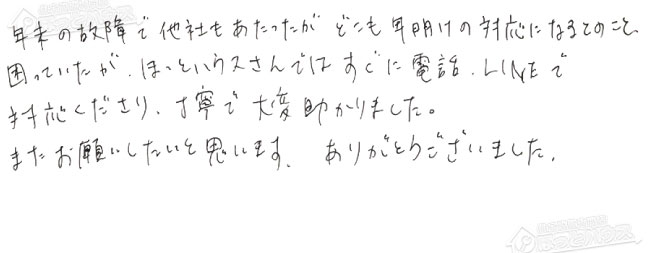 年末の故障で他社もあたったが どこも年明けの対応になるとのこと
困っていたが、ほっとハウスさんではすぐに電話、LINEで
対応くださり、丁寧で大変助かりました。
またお願いしたいと思います。 ありがとうございました。